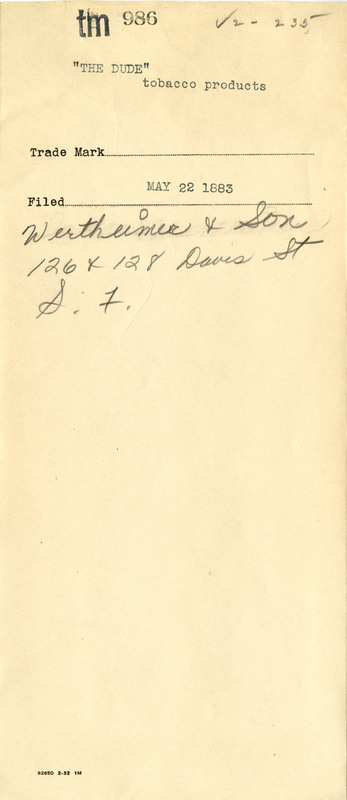 tm 986 V2 - 235
"THE DUDE"
tobacco products
Trade Mark
MAY 22 1883
Filed
Wertheimer & Son
126 & 128 Davis St
S. F.
92650 2-32 1M